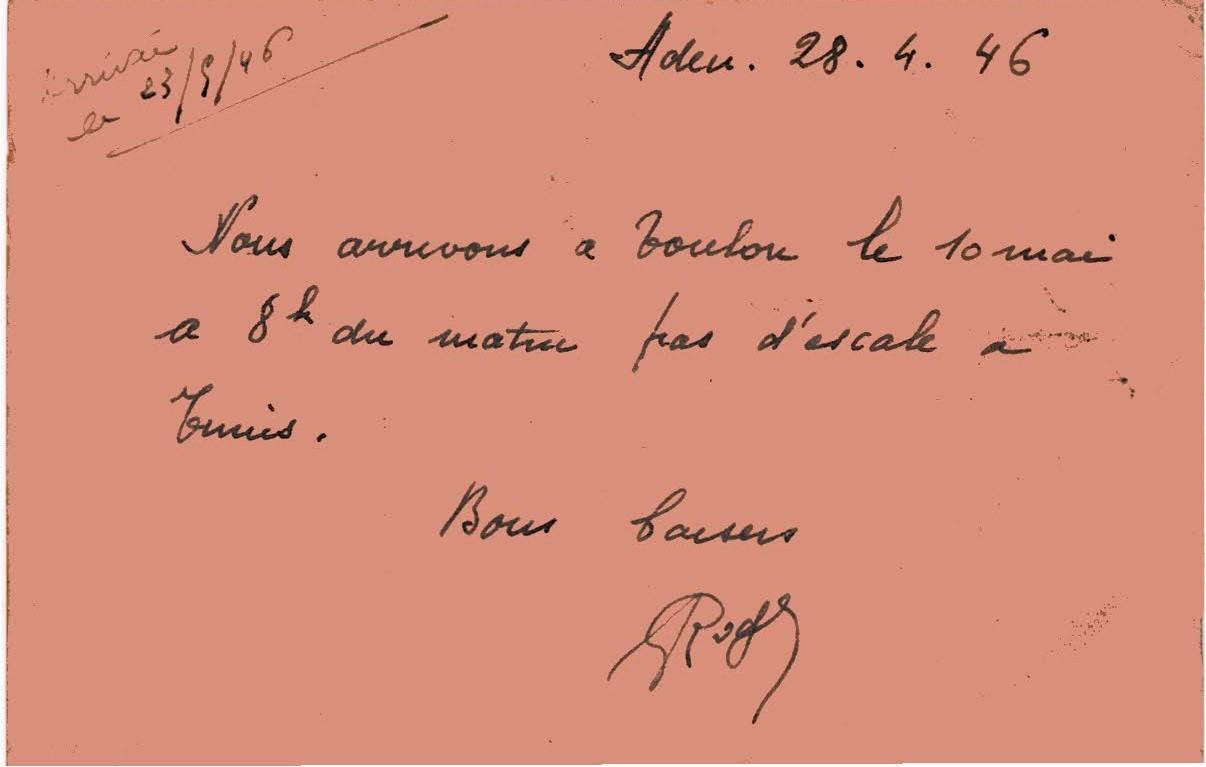 Arrivée
le 23/5/46
Aden. 28. 4. 46
Nous arrivons a Toulon le 10 mai
a 8h du matin pas d'escale a
Tunis.
Bons baisers